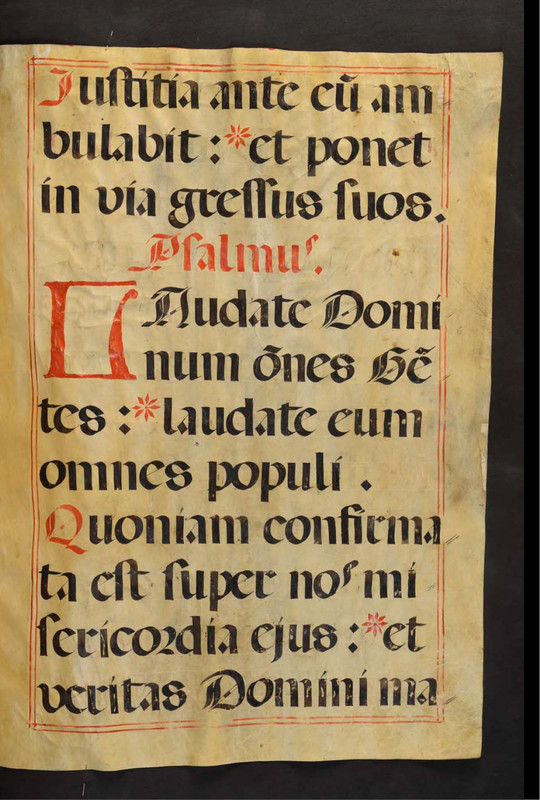 Iuſtitia ante eũ am
bulabit : * et ponet
in via greſſus ſuos.
Pſalmuſ.
LAudate Domi
num õnes Gẽ
tes : * laudate eum
omnes populi .
Quoniam confirma
ta eſt ſuper noſ mi
ſericordia ejus : * et
veritas Domini ma